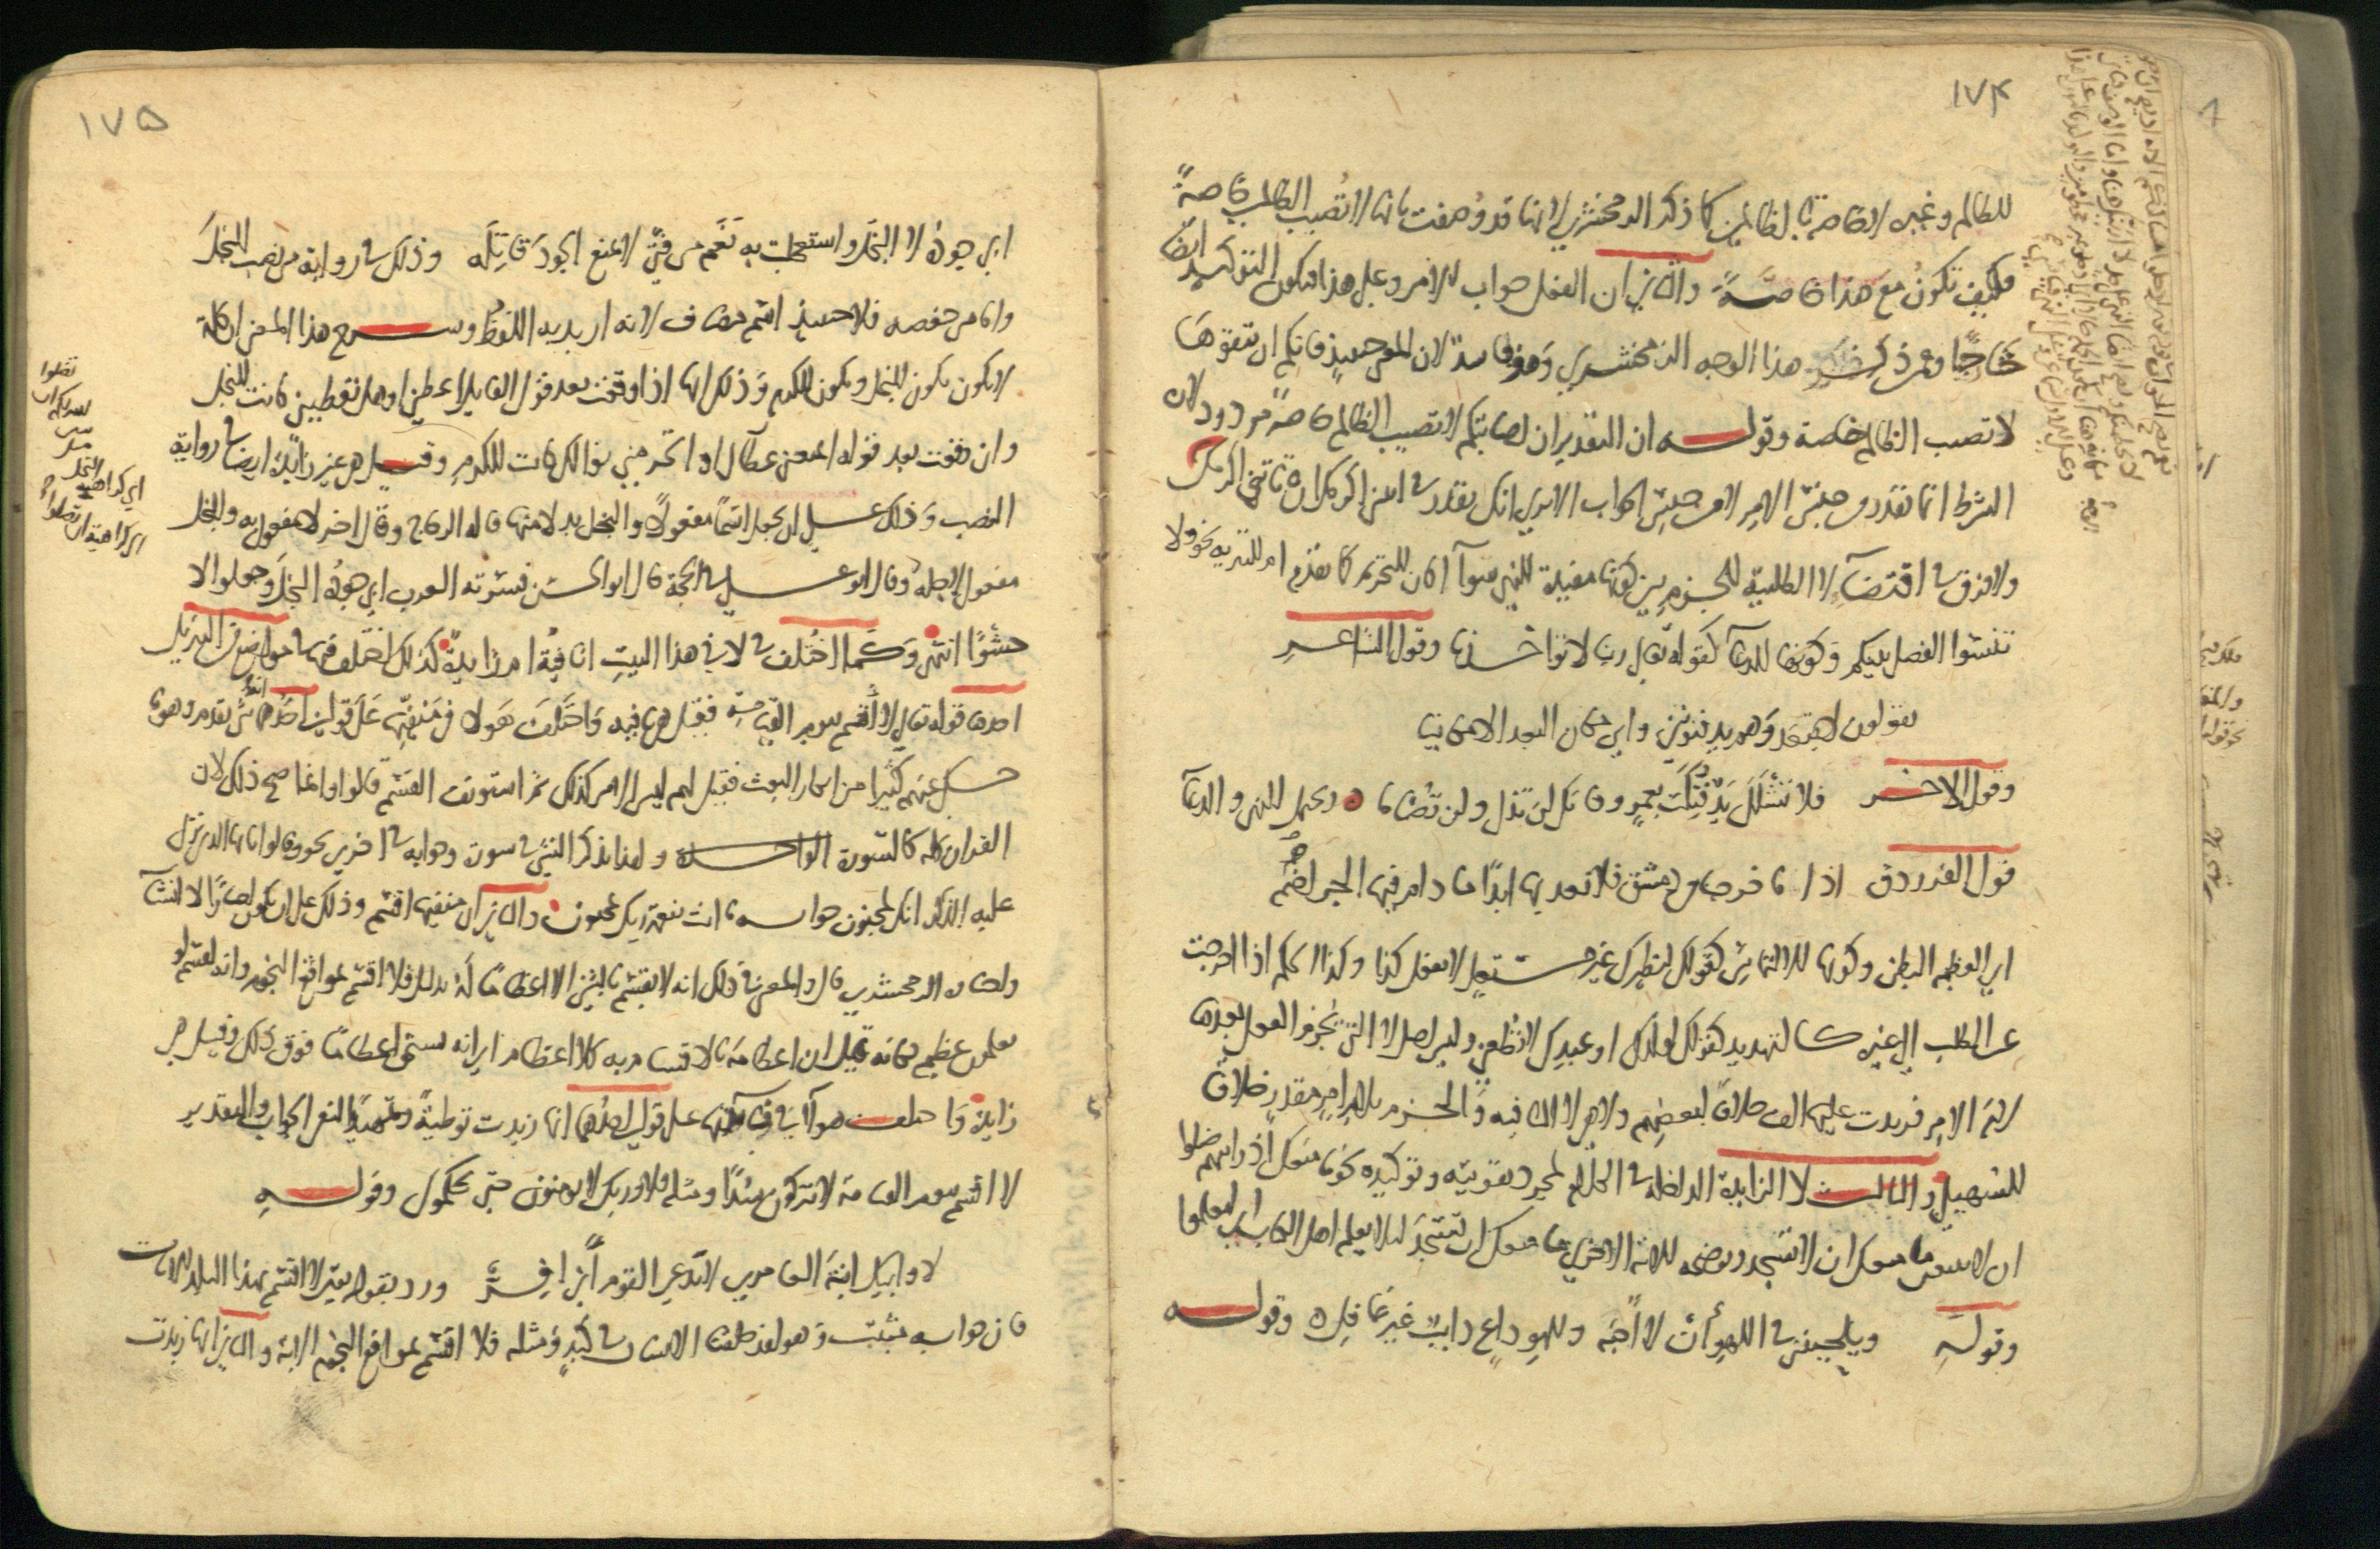 ١٧٤
للظالم وغيره لا خاصة بالظالمين كما ذكره الزمخشري لانها قد وُصفت بانها لا تُصيب الظالمين خاصةً
فكيف تكونُ مع هذا خاصّةً والثاني ان الفعل جواب للامر وعلى هذا فيكون التوكيد ايضا
خارجًا وممن ذكر هذا الوجه الزمخشري وهو فاسد لان المعنى حينئذ فانكم ان تتقوها
لا تصب الظالم خاصة وقوله ان التقدير ان اصابتكم لا تصيب الظالم خاصةً مردود لان
الشرط انما يقدر من جنس الامر لا من جنس الجواب الا ترى انك تقدر في ائتني اكرمك ان تأتني اكرمك
ولا فرق في اقتضاء لا الطلبية للجزم بين كونها مفيدة للنهي سواء اكان للتحريم كما تقدم ام للتنزيه نحو ولا
تنسوا الفضل بينكم وكونها للدعاء كقوله تعالى ربنا لا تؤاخذنا وقول الشاعر
يقولون لا تبعد وهم يدفنونني واين مكان البعد الا مكانيا
وقول الاخر فلا تشلل يدٌ فتكت بعمرٍو فانك لن تذل ولن تُضاما ويحتمل النهي والدعاء
قول الفرزدق اذا ما خرجنا من دمشق فلا نعد لها ابدًا ما دام فيها الجراضم
اي العظيم البطن وكونها للالتماس كقولك لنظيرك غير مستعلٍ لا تفعل كذا وكذا الحكم اذا اخرجت
عن الطلب الى غيره كالتهديد كقولك لولدك او عبدك لا تُطعني وليس اصل لا التي يُجزم الفعل بعدها
لام الامر فزيدت عليها الف خلافًا لبعضهم ولا هي لا النافيه والجزم بلام الامر مقدرةً خلافًا
للسهيلي والثالث لا الزايدة الداخله في الكلام لمجرد تقويته وتوكيده نحو ما منعك اذ رايتهم ضلوا
ان لا تتبعن ما منعك ان لا تسجد ويوضحه الاية الاخرى ما منعك ان تسجد لئلا يعلم اهل الكتاب اي ليعلموا
وقوله ويلحينني في اللهو أن لا أحبّه وللهو داعٍ دايب غير غافل وقوله
١٧٥
ابى جودُهُ لا البخل واستعجلت به نَعَم من فتىً لا يمنع الجود قاتِلَه وذلك في رواية من نصب البخل
واما من خفضه فلا حينئذ اسم مضاف لانه اريد به اللفظ وشرح هذا المعنى ان كلمة
لا تكون تكون للبخل وتكون للكرم وذلك انها اذا وقعت بعد قول القايل اعطني او هل تعطيني كانت للبخل
وان وقعت بعد قوله اتمنعني عطاك او اتحرمني نوالك كانت للكرم وقيل هي غير زايدة ايضا في رواية
النصب وذلك على ان تجعل اسمًا مفعولًا والبخل بدلا منها قاله الزجاج وقال اخر لا مفعول به والبخل
مفعول لاجله وقال ابو علي في الحجة قال ابو الحسن فسّرته العرب ابى جودُه البخلَ وجعلوا لا
حشوًا انتهى وكما اختُلف في لا في هذا البيت انافيةٌ ام زايدةٌ كذلك اختلف فيها في مواضع من التنزيل
احدها قوله تعالى لا أُقسم بيوم القيامة فقيل هي نافيه واختلف هولاء في منفيها على قولين احدهما انه شئ تقدم وهو ما
حكى عنهم كثيرا من انكار البعث فقيل لهم ليس الامر كذلك ثم استونف القسم قالوا وانما صح ذلك لان
القران كله كالسورة الواحدة ولهذا يذكر الشئ في سورة وجوابه في اخرى نحو وقالوا يا ايها الذي نزل
عليه الذكر انك لمجنون جوابه ما انت بنعمة ربك بمجنون والثاني ان منفيها اقسم وذلك على ان يكون اخبارًا لا انشاء
واختاره الزمخشري قال والمعنى في ذلك انه لا يقسم بالشئ الا اعظامًا له بدليل فلا اقسم بمواقع النجوم وانه لقسم لو
تعلمون عظيم فكانه قيل ان اعظامه بالاقسام به كلا اعظام اي انه يستحق اعظامًا فوق ذلك وقيل هي
زايدة واختلف هولاء في فايدتها على قولين احدهما انها زيدت توطيةً وتمهيدًا لنفي الجواب والتقدير
لا اقسم بيوم القيامة لا تتركون سُدًا ومثله فلا وربك لا يومنون حتى يحكموك وقوله
لا وابيك ابنة العامري لا يدعي القوم أني افِرّ ورد بقوله تعالى لا اقسم بهذا البلد الايات
فان جوابه مثبت وهو لقد خلقنا الانسان في كبدٍ ومثله فلا اقسم بمواقع النجوم الاية والثاني انها زيدت